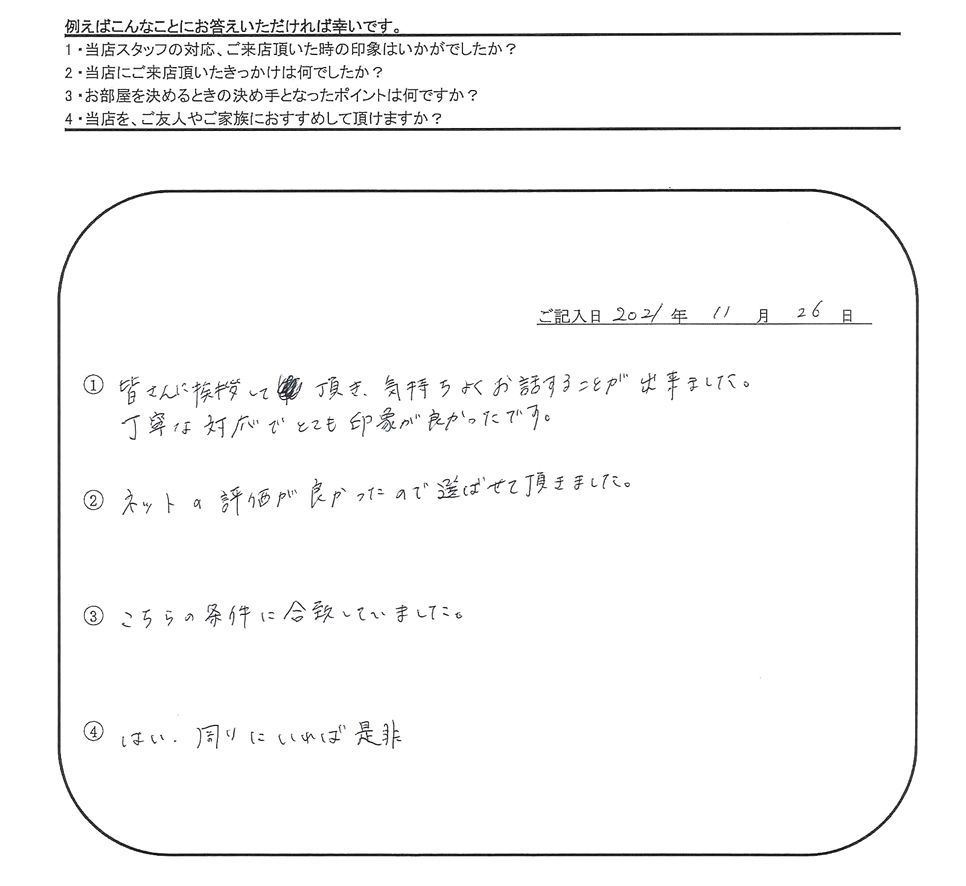 例えばこんなことにお答えいただければ幸いです。
1・当店スタッフの対応、ご来店頂いた時の印象はいかがでしたか？
2・当店にご来店頂いたきっかけは何でしたか？
3・お部屋を決めるときの決め手となったポイントは何ですか？
4・当店を、ご友人やご家族におすすめして頂けますか？
ご記入日 2021 年 11 月 26 日
① 皆さんに挨拶して 頂き、気持ちよくお話することが出来ました。
丁寧な対応でとても印象が良かったです。
② ネットの評価が良かったので選ばせて頂きました。
③ こちらの条件に合致していました。
④ はい、周りにいれば是非